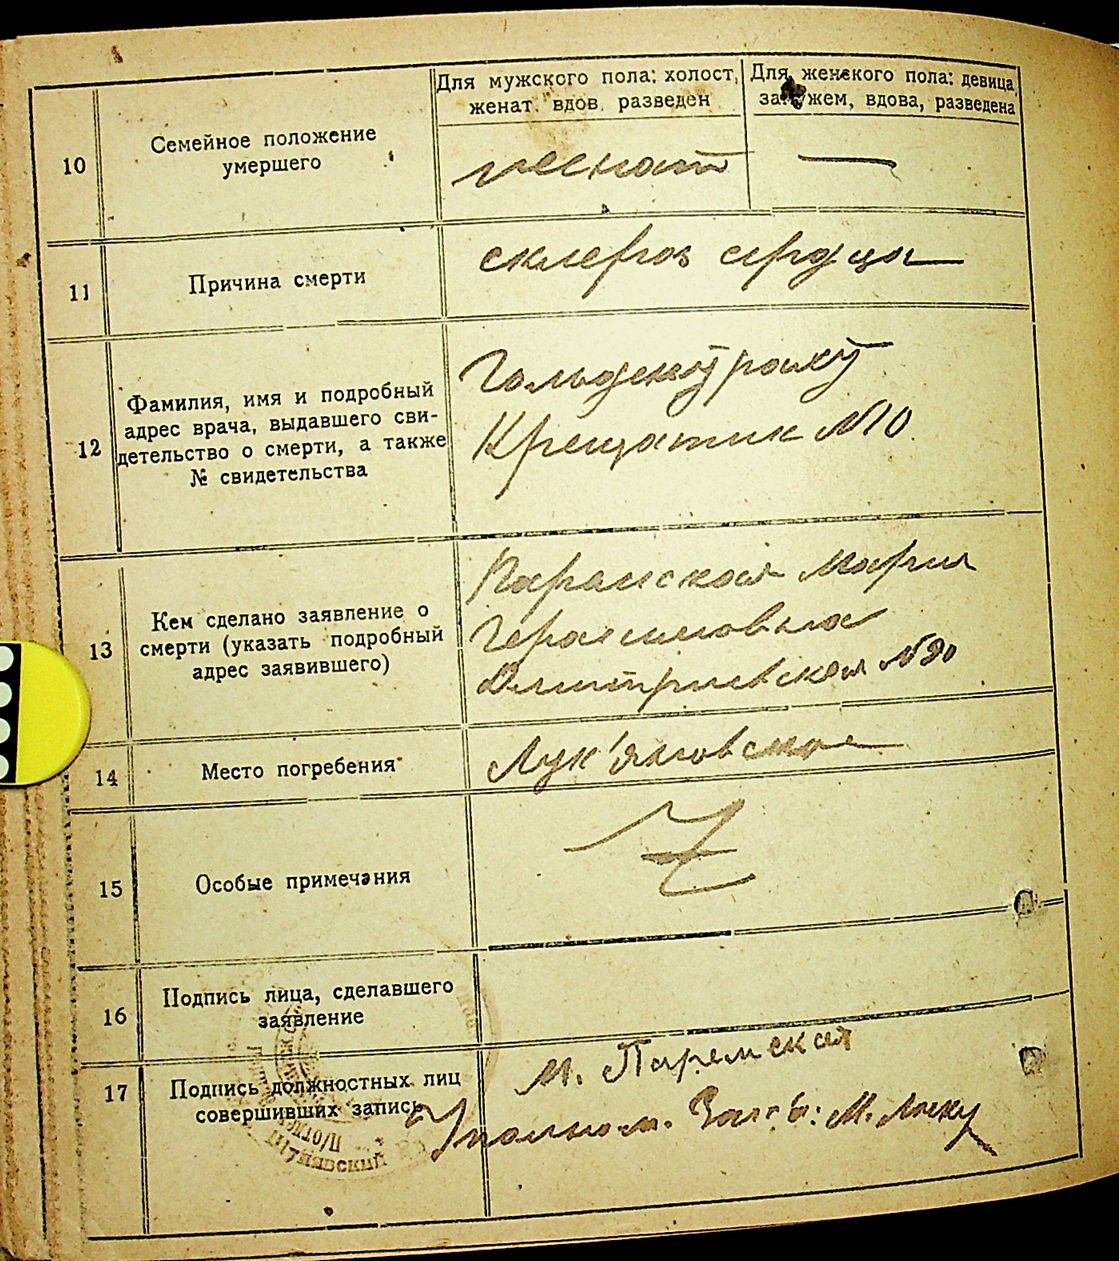 Для мужского пола: холост,
женат вдов разведен
Для женского пола: девица,
замужем, вдова, разведена
10
Семейное положение
умершего
женат
—
11
Причина смерти
склероз сердца
12
Фамилия, имя и подробный
адрес врача, выдавшего сви-
детельство о смерти, а также
№ свидетельства
Крещатик №10
13
Кем сделано заявление о
смерти (указать подробный
адрес заявившего)
Мария
Герасимовна
Дмитриевская
14
Место погребения
Лук'яновское
15
Особые примечания
16
Подпись лица, сделавшего
заявление
17
Подпись должностных лиц
совершивших запись
М. Паремская
Уполном. Загс'а: М.